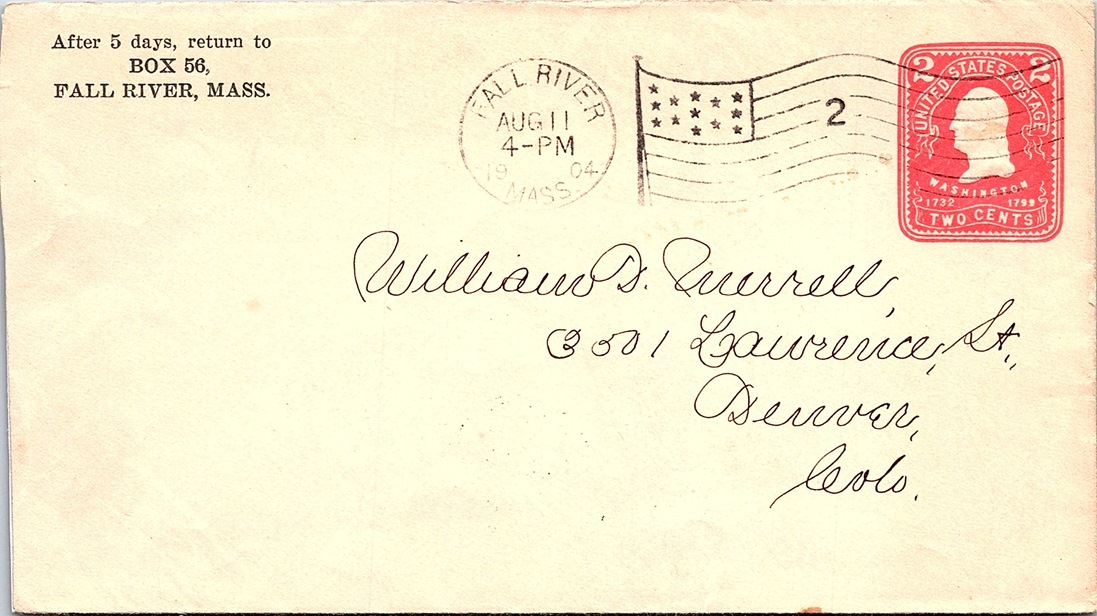 After 5 days, return to
BOX 56,
FALL RIVER, MASS.
FALL RIVER
AUG 11
4-PM
1904
MASS.
2
2 2
UNITED STATES POSTAGE
WASHINGTON
1732 1799
TWO CENTS
William D. Merrell,
3501 Lawrence, St.,
Denver,
Colo.